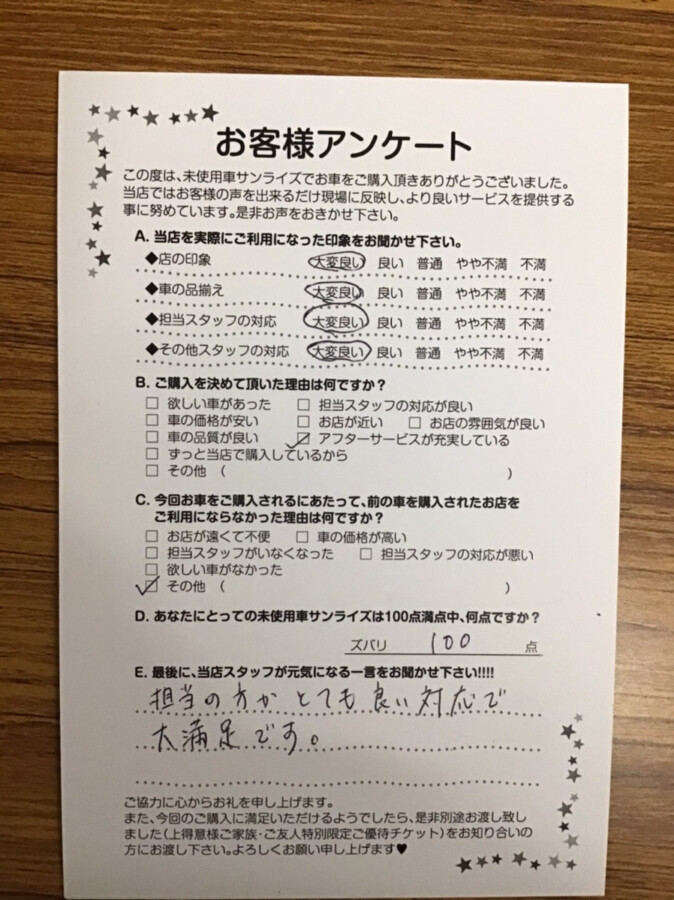 お客様アンケート
この度は、未使用車サンライズでお車をご購入頂きありがとうございました。
当店ではお客様の声を出来るだけ現場に反映し、より良いサービスを提供する
事に努めています。是非お声をおきかせ下さい。
A. 当店を実際にご利用になった印象をお聞かせ下さい。
◆店の印象 大変良い 良い 普通 やや不満 不満
◆車の品揃え 大変良い 良い 普通 やや不満 不満
◆担当スタッフの対応 大変良い 良い 普通 やや不満 不満
◆その他スタッフの対応 大変良い 良い 普通 やや不満 不満
B. ご購入を決めて頂いた理由は何ですか？
□ 欲しい車があった □ 担当スタッフの対応が良い
□ 車の価格が安い □ お店が近い □ お店の雰囲気が良い
□ 車の品質が良い ☑ アフターサービスが充実している
□ ずっと当店で購入しているから
□ その他 （ ）
C. 今回お車をご購入されるにあたって、前の車を購入されたお店を
ご利用にならなかった理由は何ですか？
□ お店が遠くて不便 □ 車の価格が高い
□ 担当スタッフがいなくなった □ 担当スタッフの対応が悪い
□ 欲しい車がなかった
☑ その他 （ ）
D. あなたにとっての未使用車サンライズは100点満点中、何点ですか？
ズバリ 100 点
E. 最後に、当店スタッフが元気になる一言をお聞かせ下さい!!!!
担当の方がとても良い対応で
大満足です。
ご協力に心からお礼を申し上げます。
また、今回のご購入に満足いただけるようでしたら、是非別途お渡し致し
ました（上得意様ご家族・ご友人特別限定ご優待チケット）をお知り合いの
方にお渡し下さい。よろしくお願い申し上げます♥